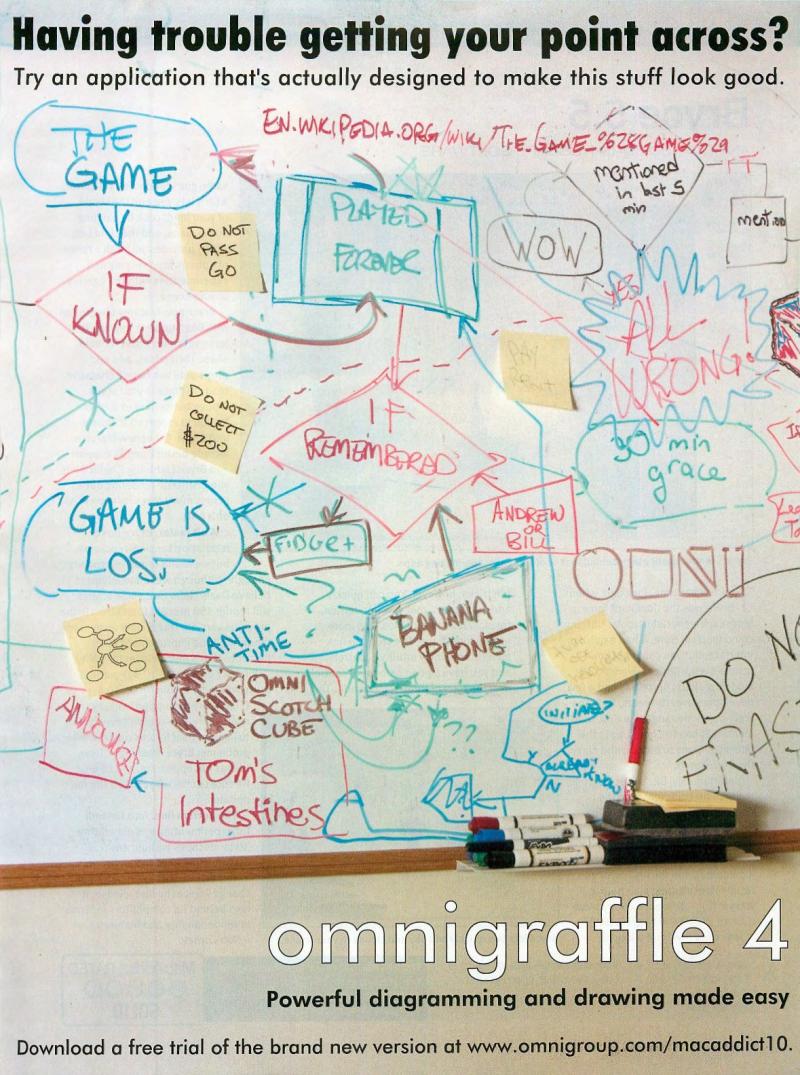 Having trouble getting your point across?
Try an application that's actually designed to make this stuff look good.
EN.WIKIPEDIA.ORG/WIKI/THE_GAME_%28GAME%29
THE
GAME
DO NOT
PASS
GO
PLAYED
FOREVER
mentioned
in last 5
min
WOW
mention
IF
KNOWN
YES
ALL
WRONG!
PAY
DO NOT
COLLECT
$200
IF
REMEMBERED
30 min
grace
GAME IS
LOST
FIDGET
ANDREW
OR
BILL
OMNI
ANTI-
TIME
BANANA
PHONE
DO NO
ERAS
ANNOUNCE
OMNI
SCOTCH
CUBE
TOM'S
Intestines
??
INITIATE?
ALREADY
KNOW
Y
N
EXPO
omnigraffle 4
Powerful diagramming and drawing made easy
Download a free trial of the brand new version at www.omnigroup.com/macaddict10.